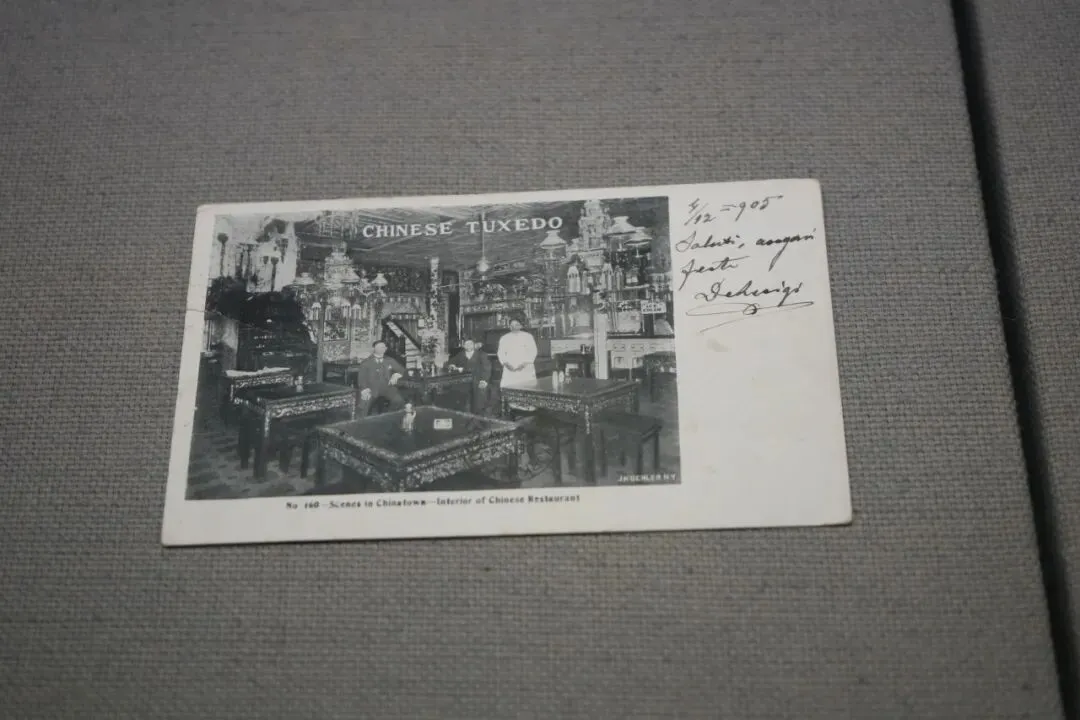 CHINESE TUXEDO
=905
Saluti, auguri
feste
J.KOEHLER N.Y.
No 160—Scenes in Chinatown—Interior of Chinese Restaurant